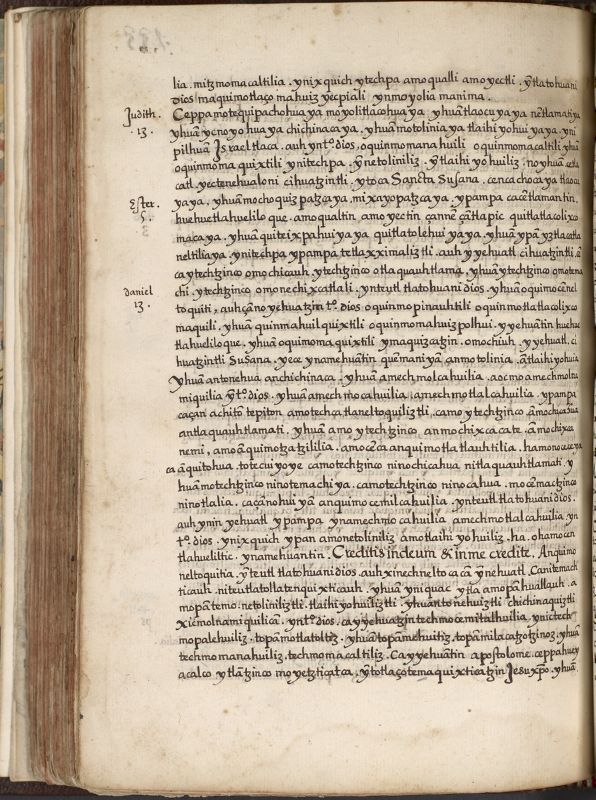 lia. mitzmomacaltilia. ynixquich ytechpa amo qualli amo yectli. ỹtlatohuani
dios maquimotlaço mahuiz yecpiali ynmoyolia manima.
Judith. 13.
Ceppa motequipachohuaya moyolitlacohuaya yhuã tlaocuyaya nẽtlamatiya
yhuã ycnoyohuaya chichinacaya. yhuã motolinia ya tlaihiyohuiyaya. yni
pilhuã Israel tlaca. auh yn tº. dios. oquinmomanahuili oquinmomacaltili yhuã
oquinmomaquixtili ynitechpa. ỹ netoliniliz. ỹ tlaihiyohuiliz. no yhuã
catl. yectenehualoni cihuatzintli. ytoca Sancta Susana. cenca chocaya tlaocu
Ester. 5.
yaya. yhuã mochoquizpatzcaya. mixayopatzcaya. ypampa cacẽtlamantin.
huehuetlahueliloque. amo qualtin amo yectin çannẽ çãtlapic quitlatlacolixco
macaya. yhuã quiteixpahuiyaya quitlatolehuiyaya. yhuã ypã
neltiliaya. ynitechpa ypampa tetlaxximaliztli. auh yyehuatl cihuatzintli.
ca ytechtzinco omochicauh. ytechtzinco otlaquauhtlama. yhuã ytechtzinco omotema
daniel 13.
chi. ytechtzinco omonechixcatlali. ynteutl tlatohuani dios. yhuã oquimocẽnel
toquiti. auh çãno yehuatzin tº. dios oquinmopinauhtili oquinmotlatlacolixco
maquili. yhuã quinmahuilquixtili oquinmomahuizpolhui. yyehuãtin huehue
tlahueliloque. yhuã oquimomaquixtili ymaquizcatzin. omochiuh. yyehuatl. ci
huatzintli Susana. yece ynamehuãtin quẽnaniyã anmotolinia. ãtlaihiyohuia
yhuã antonehua anchichinaca. yhuã amechmolcahuilia. aocmo amechmolna
miquilia ỹ tº. dios. yhuã amechmocahuilia. amechmotlalcahuilia. ypampa
caçan achitõ tepiton amotech ca tlaneltoquiliztli. camo ytechtzinco
antlaquauhtlamati. yhuã amo ytechtzinco anmochixcacate. ãmochixca
nemi. amo ãquimotzatzililia. amo cẽca anquimotlatlauhtilia. hamonoceceya
ca ãquitohua. totecuiyoye camotechtzinco ninochicahua nitlaquauhtlamati. y
huã motechtzinco ninotemachiya. camotechtzinco ninocahua. mocẽmactzinco
ninotlalia. caçãnohuiyã anquimocemilcahuilia. ynteutl tlatohuani dios.
auh ynin yehuatl ypampa ynamechmocahuilia amechmotlalcahuilia. yn
tº. dios. ynixquich ypan amonetoliniliz amotlaihiyohuiliz. ha. ohamocen
tlahueliltic. ynamehuantin. Creditis in deum & in me credite. Anquimo
neltoquitia. ỹ teutl tlatohuani dios. auh xinechneltocacã ỹ nehuatl. Canitemach
ticauh. niteutlatollatenquixticauh. yhuã yniquac ytla amopã huallauh. a
mopãtemo. netoliniliztli. tlaihiyohuiliztli. yhuan tonehuiztli chichinaquiztli
xicmolnamiquilicã. yn tº. dios. ca yyehuatzin techmocemitalhuilia. ynictech
mopalehuiliz. topãmotlatoltiz. yhuã topãmehuitiz. topãmilacatzotzinoz. yhuã
techmomanahuiliz. techmomacaltiliz. Ca yyehuãtin apostolome. ceppa huey
acalco ytlãtzinco moyetzticatca. ỹ totlaçotemaquixticatzin Jesu xpõ. yhuã